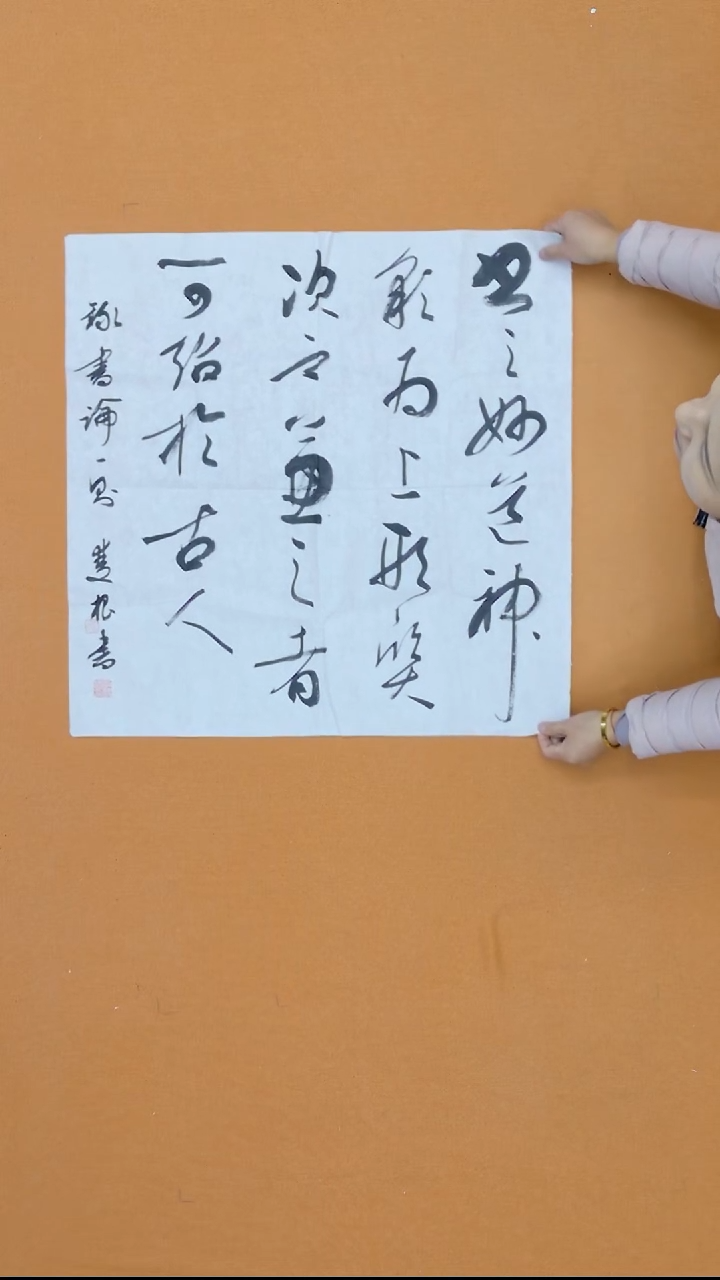 書之妙道神
彩為上形質
次之兼之者
可紹於古人
録書論一則 慧根書